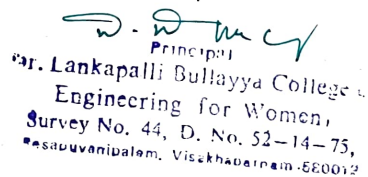 Principal
Dr. Lankapalli Bullayya College
Engineering for Women,
Survey No. 44, D. No. 52-14-75,
Resapuvanipalem, Visakhapatnam-530013